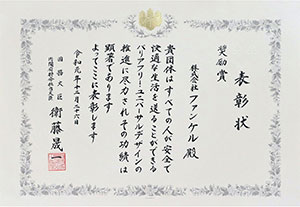 表彰状
奨励賞
株式会社ファンケル殿
貴団体はすべての人が安全で
快適な生活を送ることができる
バリアフリー・ユニバーサルデザインの
推進に尽力されその功績は
顕著であります
よってここに表彰します
令和元年十二月二十六日
国務大臣
衛藤晟一